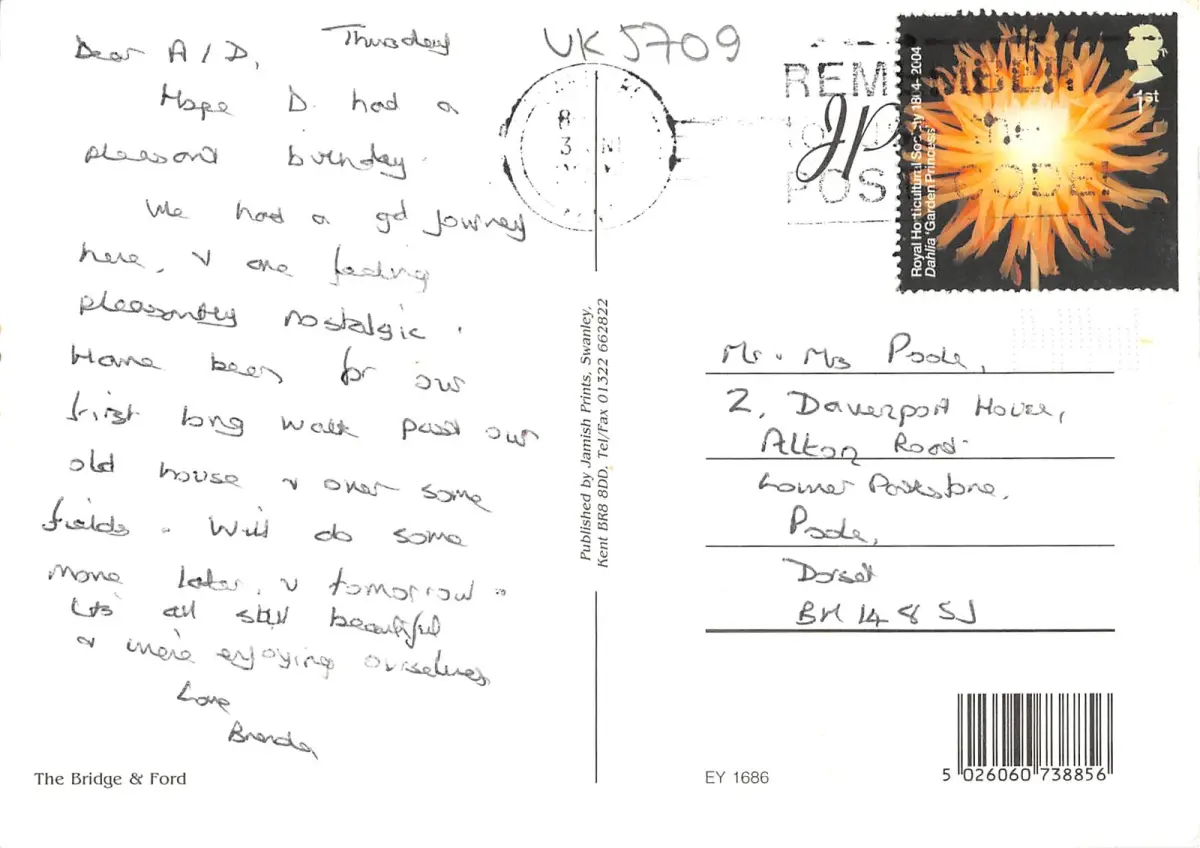 Thursday
Dear A/D,
Hope D. had a
pleasant birthday.
We had a gd journey
here, & are feeling
pleasantly nostalgic.
Have been for our
first long walk past our
old house & over some
fields. Will do some
more later, & tomorrow.
It's all still beautiful
& we're enjoying ourselves
Love
Brenda
The Bridge & Ford
UK 5709
8
3
REMEMBER
to use
POSTCODE!
JP
Royal Horticultural Society 1804-2004
Dahlia 'Garden Princess'
1st
Published by Jamish Prints, Swanley,
Kent BR8 8DD, Tel/Fax 01322 662822
Mr & Mrs Poole,
2, Davenport House,
Alton Road
Lower Parkstone,
Poole,
Dorset
BH14 8SJ
EY 1686
5 026060 738856